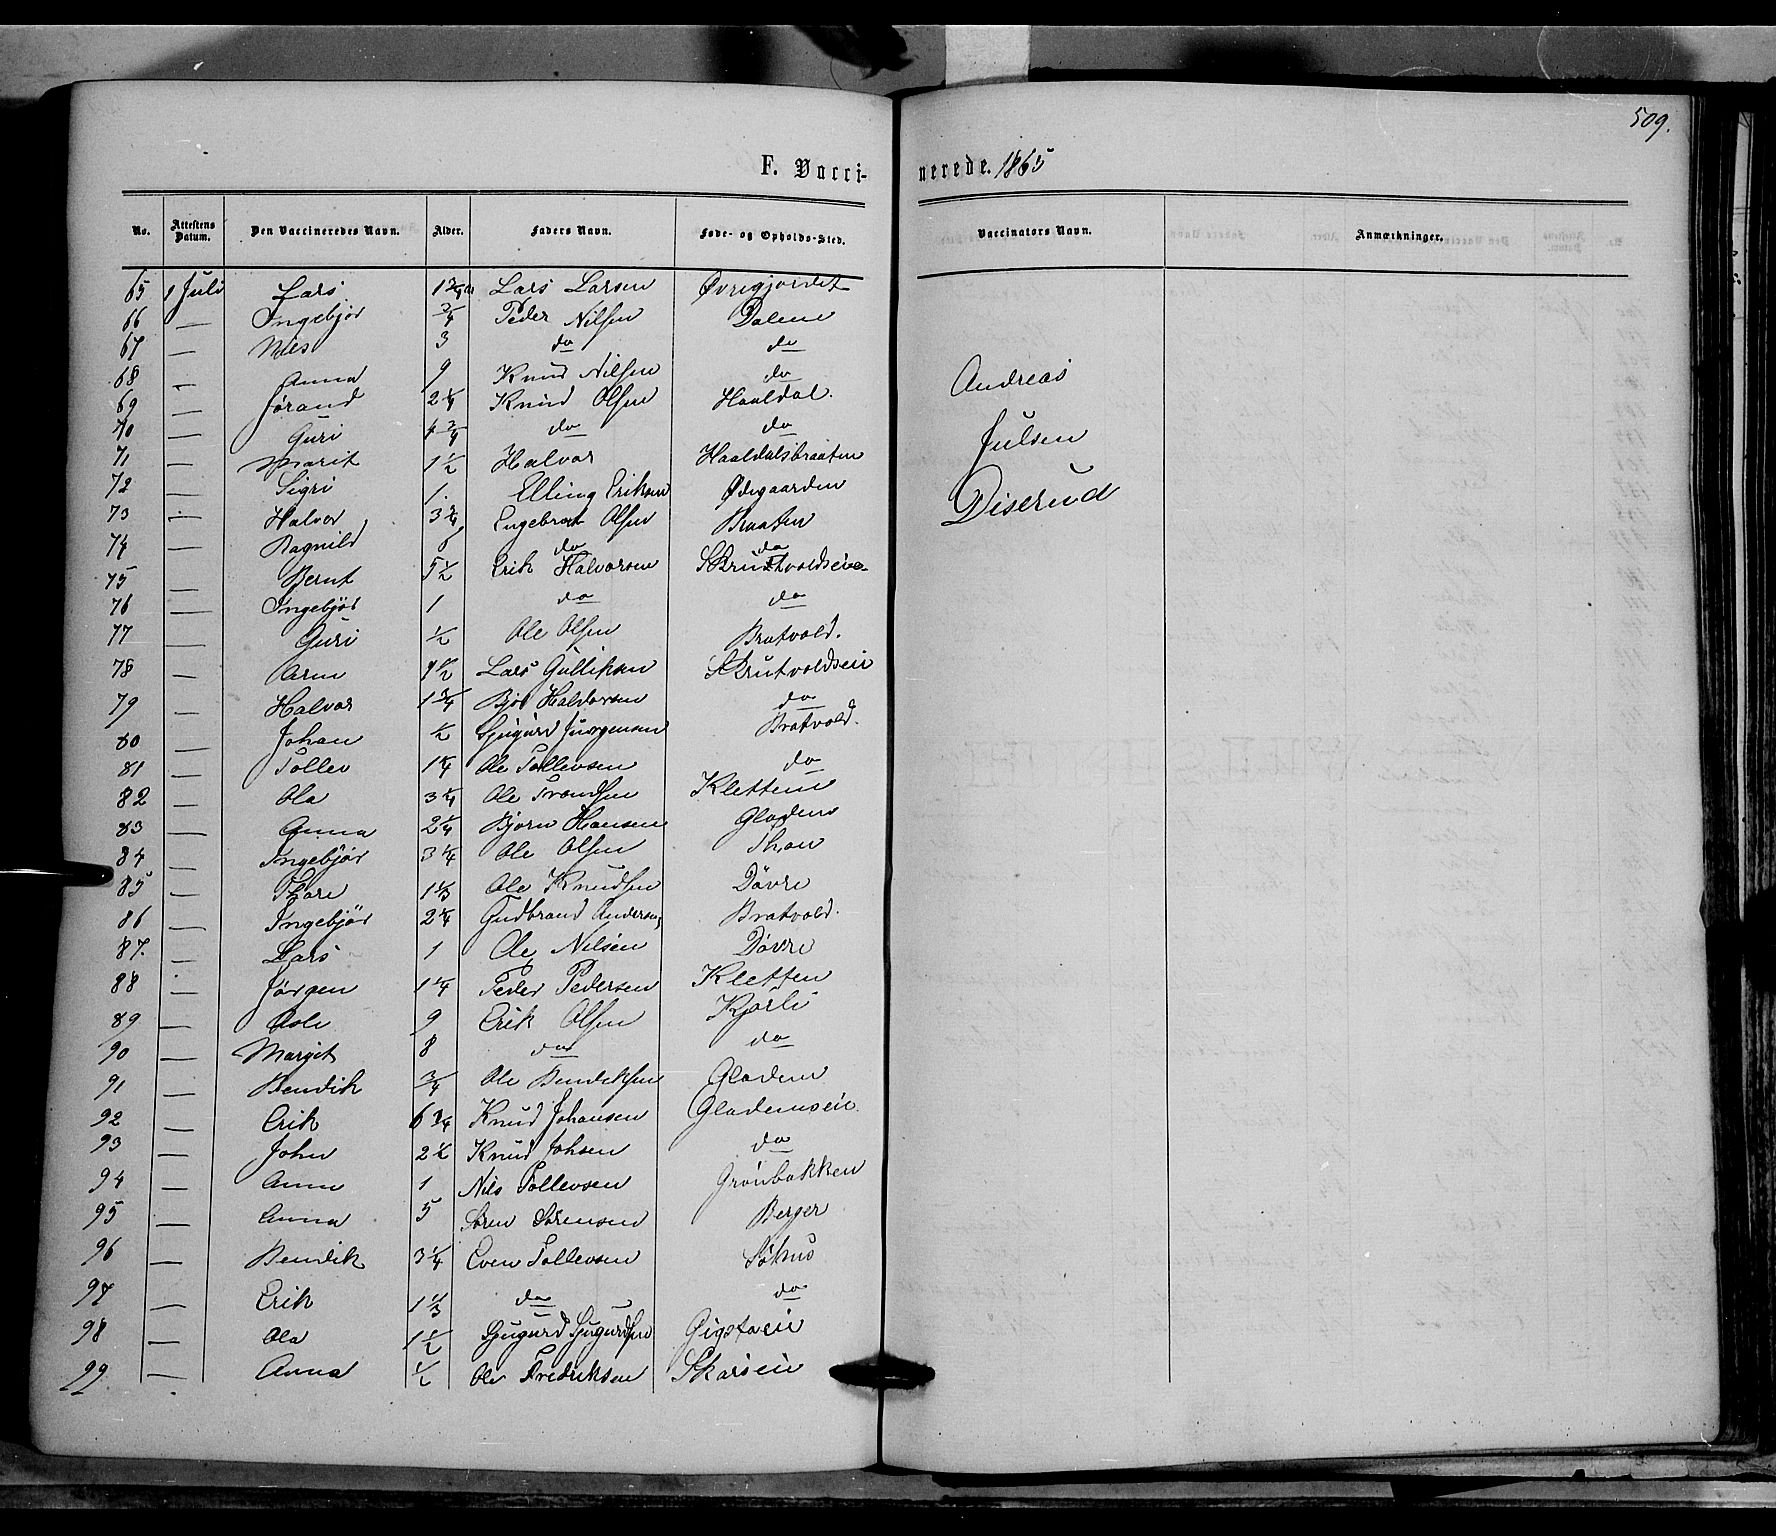 509.
F. Vacci- nerede. 1865
No. Attestens Datum. Den Vaccineredes Navn. Alder. Faders Navn. Føde- og Opholds-Sted. Vaccinators Navn. Anmærkninger.
65 1 Juli Lars 1 3/4 Lars Larsen Øvregjordet
66 — Ingebjør 3/4 Peder Nilsen Dalene
67 — Niels 3 do do
68 — Anna 9 Knud Nilsen do
69 — Jørand 2 1/4 Knud Olsen Haaldal.
70 — Guri do do
71 — Marit 1 1/2 Halvor Haaldalsbraaten
72 — Sigri 1. Elling Eriksen Ødegaarden
73 — Halvor 3 3/4 Engebret Olsen Braaten
74 — Ragnild do do
75 — Bernt 5 1/2 Erik Halvorsen
76 — Ingebjør 1 do do
77 — Guri 1/2 Ole Olsen Bratvold.
78 — Lars Gulliksen
79 — Halvor 1 3/4 Halvorsen do
80 — Johan 1/2 Sjugurd Juorgensen Bratvold.
81 — Tollev 1 1/4 Ole Tollevsen do
82 — Ola 3 1/4 Ole Trondsen
83 — Anna 2 1/4 Bjørn Hansen
84 — Ingebjør 3 1/4 Ole Olsen Thon
85 — Thore 1 1/3 Ole Knudsen Døvre
86 — Ingebjør 2 1/4 Gudbrand Andersen Bratvold.
87. — Lars 1 Ole Nilsen Døvre
88 — Jørgen 1 1/4 Peder Pedersen Kletten
89 — Asle 9 Erik Olsen Kjørli
90 — Margit 8 do do
91 — Bendik 3/4 Ole Bendiksen Gladem
92 — Erik 6 3/4 Knud Johansen Glademseie
93 — John 2 1/2 Knud Johsen do
94 — Anne 1 Nils Tollevsen Grønbakken
95 — Anna 5 Søren Sørensen Berger
96 — Bendik 3 1/4 Even Tollevsen Søhus
97 — Erik 1 1/3 do do
98 — Ola 1 1/2 Sjugurd Sjugurdsen
99 — Anna 1/2 Ole Fredriksen Skarseie
Andreas
Julsen
Diserud